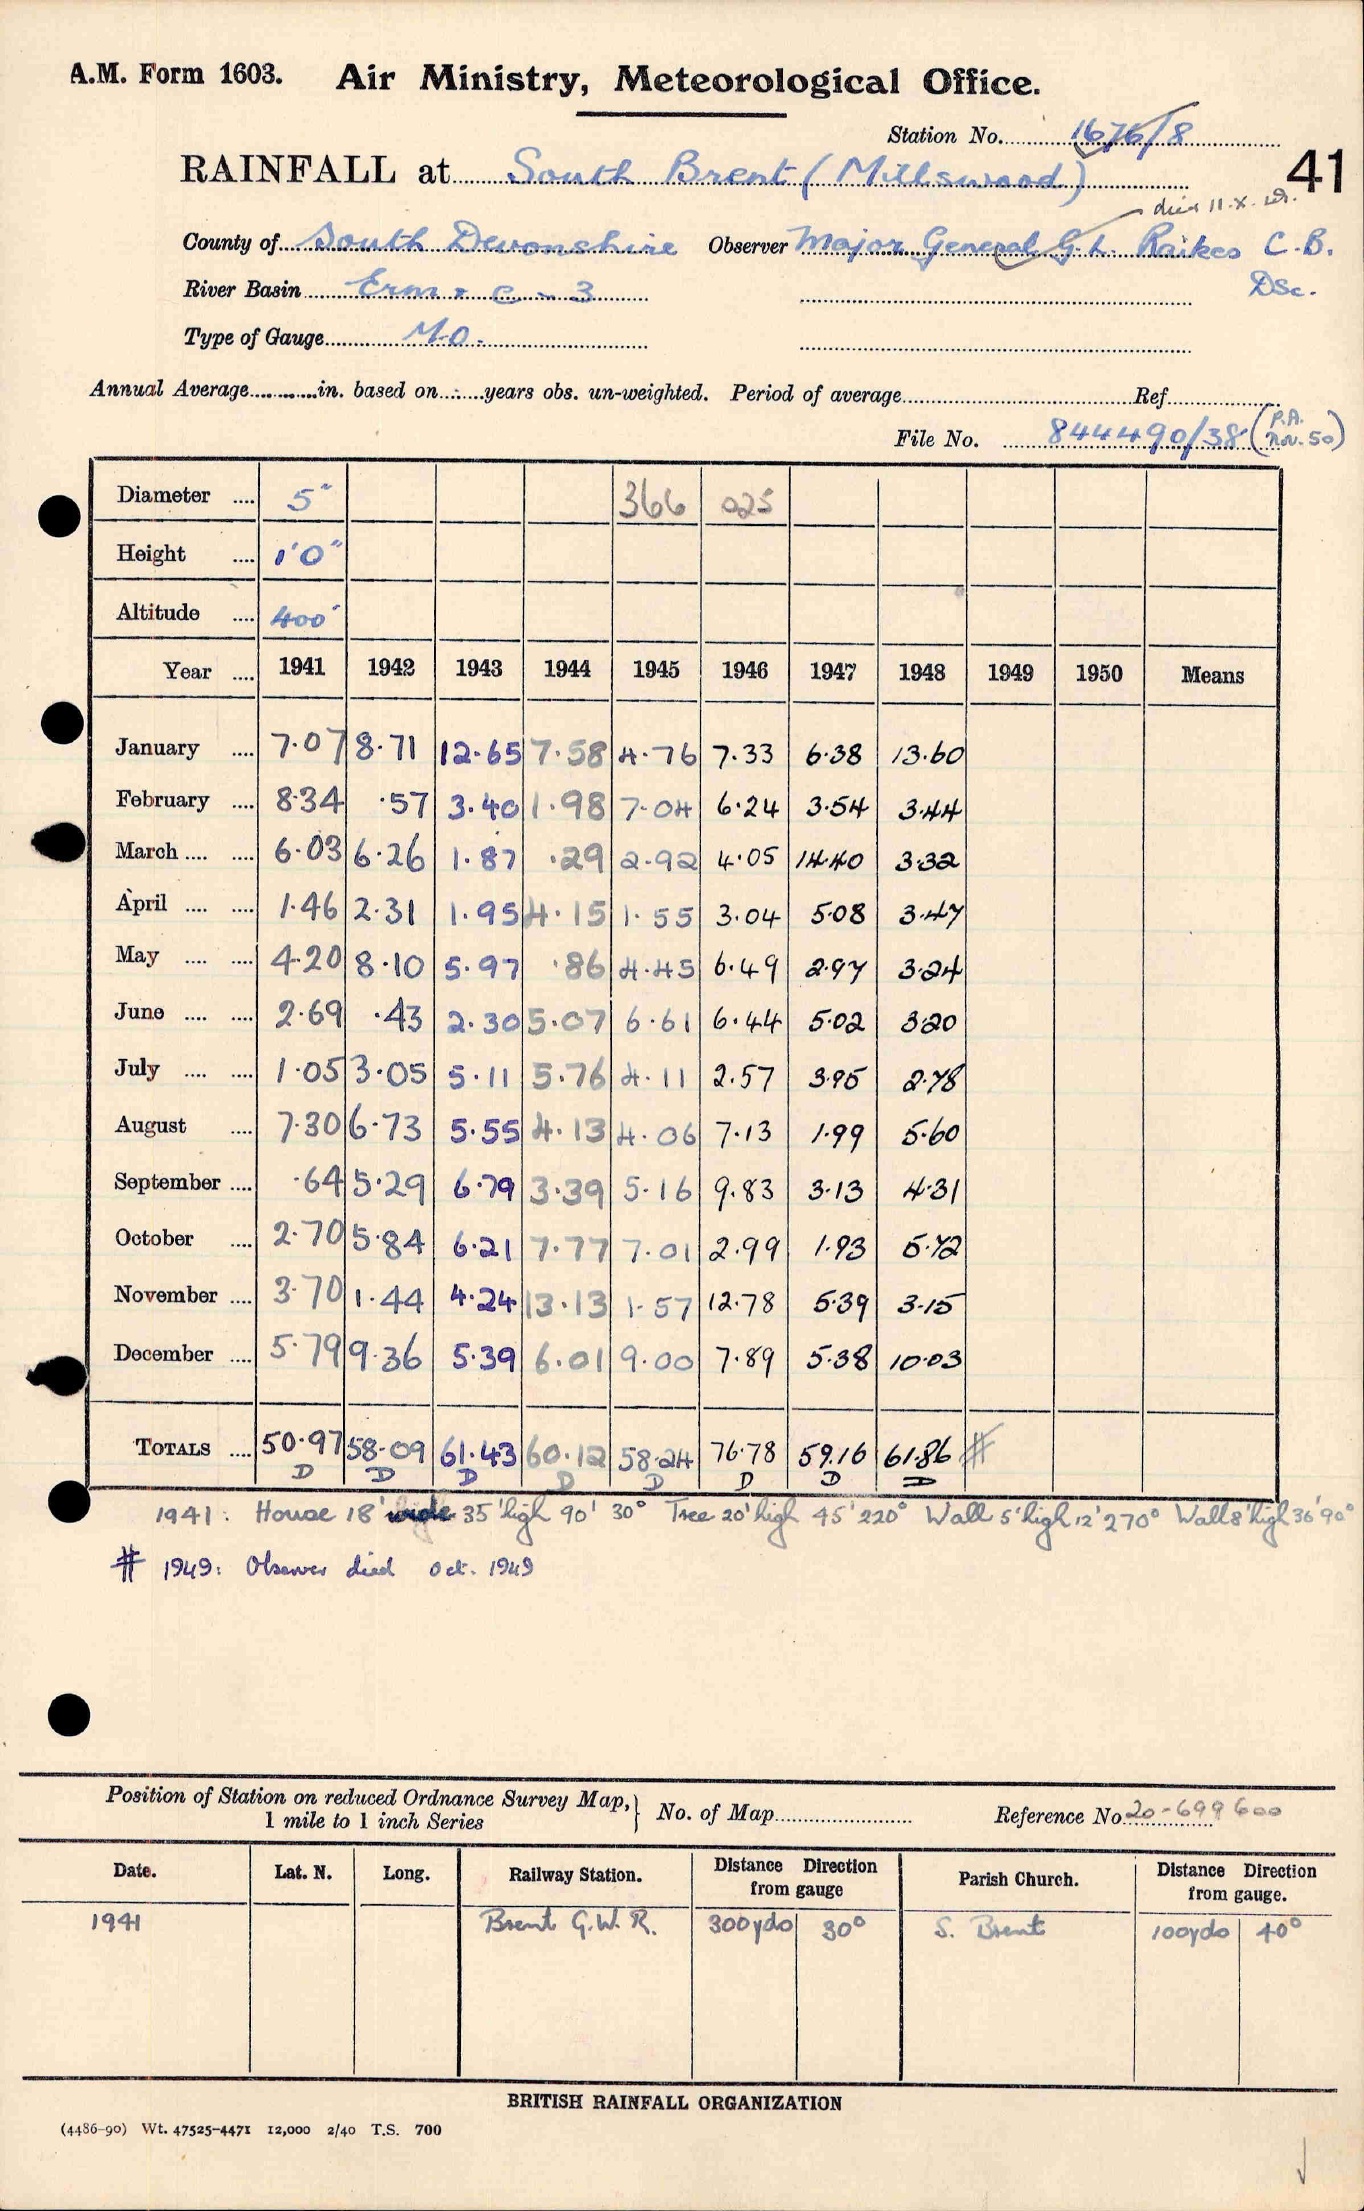 A.M. Form 1603. Air Ministry, Meteorological Office.
Station No. 1676/8
RAINFALL at South Brent (Millswood) 41
died 11.x.49.
County of South Devonshire Observer Major General G.L. Raikes C.B.
River Basin Erm & C - 3 DSc.
Type of Gauge M.O.
Annual Average in. based on years obs. un-weighted. Period of average Ref
File No. 844490/38 (P.A. Nov. 50)
Diameter 5" 366 025
Height 1'0"
Altitude 400'
Year 1941 1942 1943 1944 1945 1946 1947 1948 1949 1950 Means
January 7.07 8.71 12.65 7.58 4.76 7.33 6.38 13.60
February 8.34 .57 3.40 1.98 7.04 6.24 3.54 3.44
March 6.03 6.26 1.87 .29 2.92 4.05 14.40 3.32
April 1.46 2.31 1.95 4.15 1.55 3.04 5.08 3.47
May 4.20 8.10 5.97 .86 4.45 6.49 2.97 3.24
June 2.69 .43 2.30 5.07 6.61 6.44 5.02 3.20
July 1.05 3.05 5.11 5.76 4.11 2.57 3.95 2.78
August 7.30 6.73 5.55 4.13 4.06 7.13 1.99 5.60
September .64 5.29 6.79 3.39 5.16 9.83 3.13 4.31
October 2.70 5.84 6.21 7.77 7.01 2.99 1.93 5.72
November 3.70 1.44 4.24 13.13 1.57 12.78 5.39 3.15
December 5.79 9.36 5.39 6.01 9.00 7.89 5.38 10.03
TOTALS 50.97 58.09 61.43 60.12 58.24 76.78 59.16 61.86 #
D D D D D D D D
1941: House 18' 35' high 90' 30° Tree 20' high 45' 220° Wall 5' high 12' 270° Wall 8' high 36' 90°
# 1949: Observer died Oct. 1949
Position of Station on reduced Ordnance Survey Map, 1 mile to 1 inch Series } No. of Map Reference No 20-699600
Date. Lat. N. Long. Railway Station. Distance Direction from gauge Parish Church. Distance Direction from gauge.
1941 Brent G.W.R. 300yds 30° S. Brent 100yds 40°
BRITISH RAINFALL ORGANIZATION
(4486-90) Wt. 47525-4471 12,000 2/40 T.S. 700